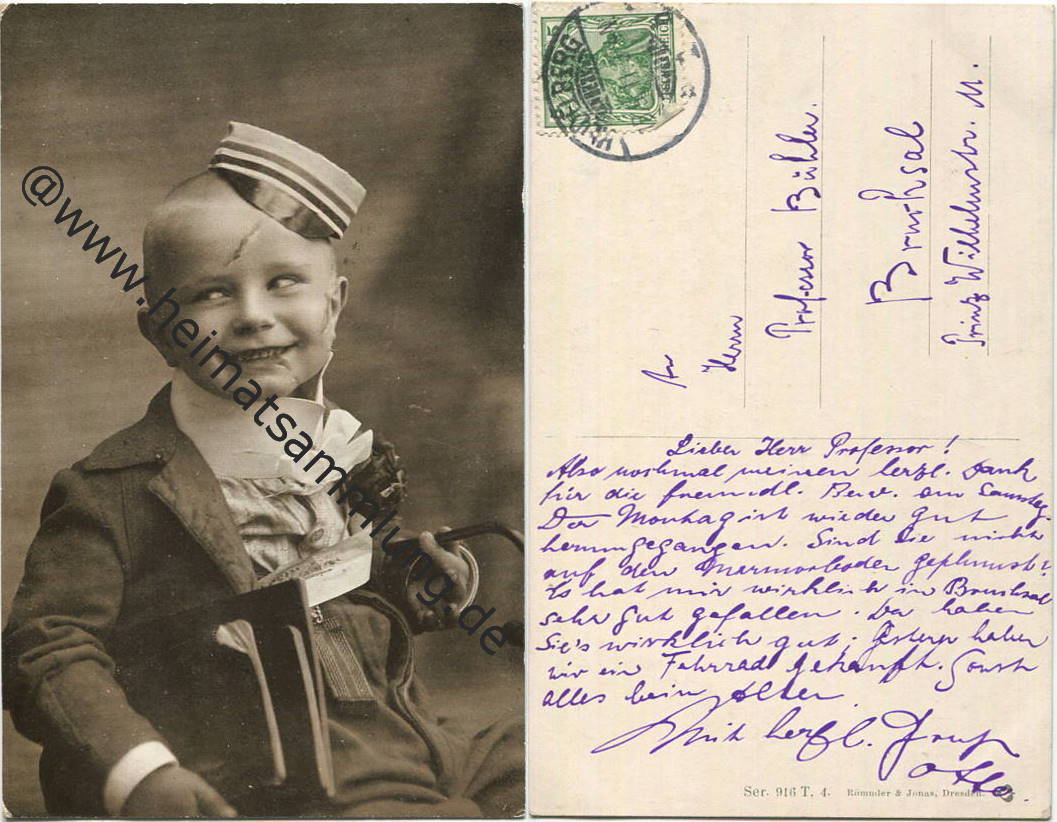 @www.heimatsammlung.de
HEIDELBERG
DEUTSCHES REICH
An
Herrn
Professor Bühler.
Bruchsal
Prinz Wilhelmstr. 11.
Lieber Herr Professor!
Also nochmal meinen herzl. Dank
für die freundl. Bew. am Samstag.
Der Montag ist wieder gut
herumgegangen. Sind Sie nicht
auf den Marmorboden geplumst?
Es hat mir wirklich in Bruchsal
sehr gut gefallen. Da haben
Sie's wirklich gut; Gestern haben
wir ein Fahrrad gekauft. Sonst
alles beim Alten.
Mit herzl. Gruß
Otto.
Ser. 916 T, 4. Römmler & Jonas, Dresden.